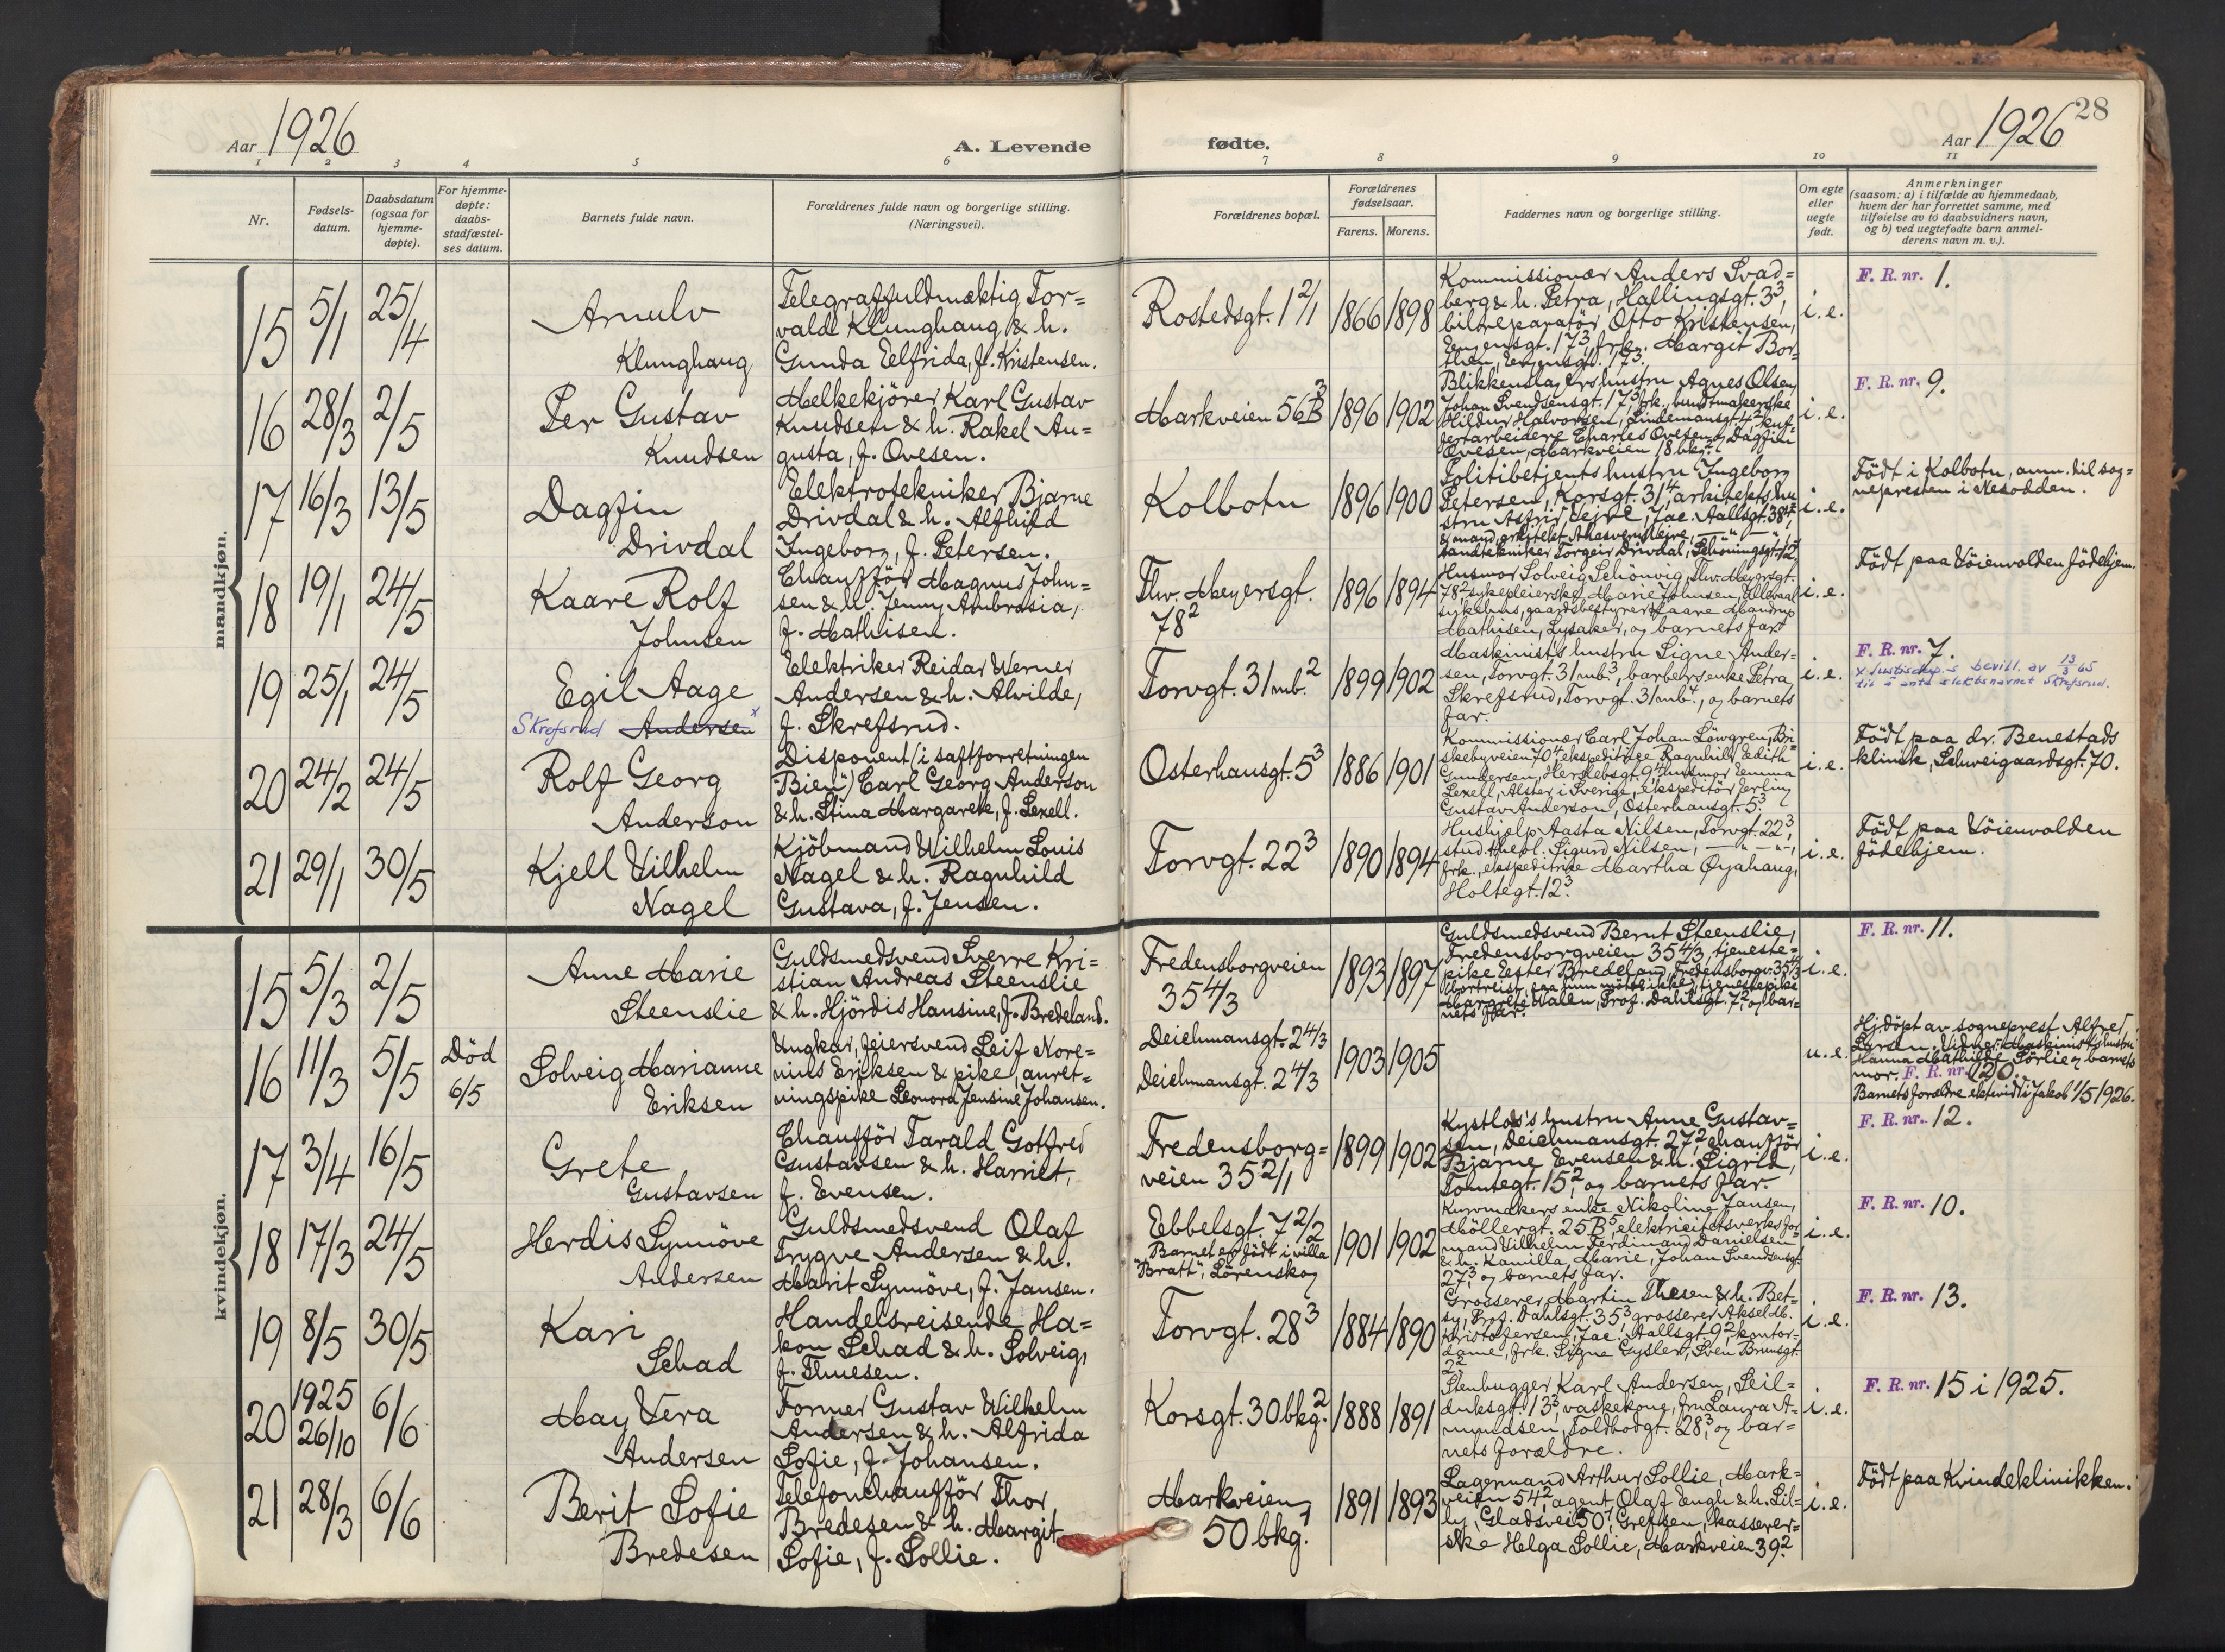 Aar 1926
A. Levende
fødte.
Aar 1926
28
1 2 3 4 5 6 7 8 9 10 11
Nr.
Fødsels-
datum.
Daabsdatum
(ogsaa for
hjemme-
døpte).
For hjemme-
døpte:
daabs-
stadfæstel-
ses datum.
Barnets fulde navn.
Forældrenes fulde navn og borgerlige stilling.
(Næringsvei).
Forældrenes bopæl.
Forældrenes
fødselsaar.
Farens. Morens.
Faddernes navn og borgerlige stilling.
Om egte
eller
uegte
født.
Anmerkninger
(saasom: a) i tilfælde av hjemmedaab,
hvem der har forrettet samme, med
tilføielse av to daabsvidners navn,
og b) ved uegtefødte barn anmel-
derens navn m. v.).
mandkjøn.
15 5/1 25/4
Arnulv
Klunghaug
Telegraffuldmæktig Tor=
vald Klunghaug & h.
Gunda Elfrida, f. Kristensen.
Rostedsgt. 1 2/1
1866 1898
Kommissionær Anders Svad=
berg & h. Petra, Hallingsgt. 3³,
bilreparatör Otto Kristensen,
Eugensgt. 17³, frk. Margit Bor=
then, Eugensgt. 17³.
i. e.
F. R. nr. 1.
16 28/3 2/5
Per Gustav
Knudsen
Melkekjörer Karl Gustav
Knudsen & h. Rakel Au=
gusta, f. Ovesen.
Markveien 56B³
1896 1902
Blikkenslagershustru Agnes Olsen,
Johan Svendsensgt. 17³, frk., buntmakerske
Hildur Halvorsen, Lindemansgt. 4²,
Charles Ovesen og Dagfin
Ovesen, Markveien 18 bkg.²
i. e.
F. R. nr. 9.
17 16/3 13/5
Dagfin
Drivdal
Elektrotekniker Bjarne
Drivdal & h. Alfhild
Ingeborg, f. Petersen.
Kolbotn
1896 1900
Politibetjents hustru Ingeborg
Petersen, Korsgt. 31⁴, arkitekts hu
stru Astrid Vejre, Jac. Aallsgt. 38
& mand, arkitekt
tandtekniker Torgeir Drivdal, Schöningsgt. 12
i. e.
Födt i Kolbotn, anm. til sog=
nepresten i Nesodden.
18 19/1 24/5
Kaare Rolf
Johnsen
Chauffför Magnus John=
sen & h. Jenny Ambrosia,
f. Mathisen.
Thv. Meyersgt.
78²
1896 1894
Husmor Solveig Schönvig, Thv. Meyersgt.
78², sykepleierske Marie Johnsen, Ullevaal
sykehus, gaardsbestyrer Kaare Mandrup
Mathisen, Lysaker, og barnets far.
i. e.
Födt paa Vöienvolden födehjem.
19 25/1 24/5
Egil Aage
Skrefsrud Andersen x
Elektriker Reidar Werner
Andersen & h. Alvilde,
f. Skrefsrud.
Torvgt. 31 mb.²
1899 1902
Maskinists hustru Signe Ander=
sen, Torvgt. 31 mb.³, barbersenke Petra
Skrefsrud, Torvgt. 31 mb.⁴, og barnets
far.
i. e.
F. R. nr. 7.
x Justisdep.s bevill. av 13/3 65
til å anta slektsnavnet Skrefsrud.
20 24/2 24/5
Rolf Georg
Anderson
Disponent (i saftforretningen
"Bien") Carl Georg Anderson
& h. Stina Margarete, f. Lexell.
Osterhausgt. 5³
1886 1901
Kommissionær Carl Johan Löwgren, Bi=
skebyveien 70⁴, ekspeditrice Ragnhild Edith
Gundersen, Herslebsgt. 9⁴, husmor Emma
Lexell, Alster i Sverige, ekspeditör Erling
Gustav Anderson, Osterhausgt. 5³.
i. e.
Födt paa dr. Benestads
klinik, Schweigaardsgt. 70.
21 29/1 30/5
Kjell Vilhelm
Nagel
Kjöbmand Wilhelm Louis
Nagel & h. Ragnhild
Gustava, f. Jensen.
Torvgt. 22³
1890 1894
Hushjelp Aasta Nilsen, Torvgt. 22³,
stud. theol. Sigurd Nilsen, — " — " —,
frk., ekspeditrice Martha Øyahaug,
Holtegt. 12³.
i. e.
Födt paa Vöienvolden
födehjem.
kvindekjøn.
15 5/3 2/5
Anne Marie
Steenslie
Guldsmedsvend Sverre Kri=
stian Andreas Steenslie
& h. Hjördis Hansine, f. Bredeland.
Fredensborgveien
35 4/3
1893 1897
Guldsmedsvend Bernt Steenslie,
Fredensborgveien 35 4/3, tjeneste=
pike Ester Bredeland, Fredensborgv. 35 4/3
(bortreist, saa hun mötte ikke), tjenestepike
Margrete Valen, Prof. Dahlsgt. 7², og bar=
nets far.
i. e.
F. R. nr. 11.
16 11/3 5/5
Död
6/5
Solveig Marianne
Eriksen
Ungkar, feiersvend Leif Nore=
nius Eriksen & pike, anret=
ningspike Leonora Jensine Johansen.
Deichmansgt. 2 4/3
Deichmansgt. 2 4/3
1903 1905
u. e.
Hj.döpt av sogneprest Alfred
Larsen. Vidner: Maskinists hustru
Hanna Mathilde Sörlie og barnets
mor. F. R. nr. (20.
Barnets forældre ektevidd i Jakob 1/5 1926.
17 3/4 16/5
Grete
Gustavsen
Chauffför Tarald Gotfred
Gustavsen & h. Harriet,
f. Evensen.
Fredensborg=
veien 35 2/1
1899 1902
Kystlods's hustru Anne Gustav=
sen, Deichmansgt. 27², chauffför
Bjarne Evensen & h. Sigrid,
Tomtegt. 15², og barnets far.
i. e.
F. R. nr. 12.
18 17/3 24/5
Herdis Synnöve
Andersen
Guldsmedsvend Olaf
Trygve Andersen & h.
Marit Synnöve, f. Jansen.
Ebbelsgt. 7 2/2
Barnet er födt i villa
"Bratt", Lörenskog
1901 1902
Kurvmakers enke Nikoline Jansen,
Möllergt. 25B⁵, elektricitetsverksfor=
mand Vilhelm Ferdinand Danielsen
& h. Kamilla Marie, Johan Svendsensgt.
27³, og barnets far.
i. e.
F. R. nr. 10.
19 8/5 30/5
Kari
Schad
Handelsreisende Ha=
kon Schad & h. Solveig,
f. Thuesen.
Torvgt. 28³
1884 1890
Grosserer Martin Thesen & h. Bet=
sy, Prof. Dahlsgt. 35³, grosserer Aksel M.
Kristofersen, Jac. Aallsgt. 9², kontor=
dame, frk. Signe Gysler, Sven Brunsgt.
2².
i. e.
F. R. nr. 13.
20 1925 26/10 6/6
May Vera
Andersen
Former Gustav Wilhelm
Andersen & h. Alfrida
Sofie, f. Johansen.
Korsgt. 30 bkg.²
1888 1891
Stenhugger Karl Andersen, Seil=
duksgt. 13³, vaskekone, fru Laura A=
mundsen, Toldbodgt. 28³, og bar=
nets forældre.
i. e.
F. R. nr. 15 i 1925.
21 28/3 6/6
Berit Sofie
Bredesen
Telefonchauffför Thor
Bredesen & h. Margit
Sofie, f. Sollie.
Markveien
50 bkg.¹
1891 1893
Lagermand Arthur Sollie, Mark=
veien 54², agent Olaf Engh & h. Lil=
ly, Gladsvei 50¹, Grefsen, kasserer=
ske Helga Sollie, Markveien 39².
i. e.
Födt paa Kvindeklinikken.